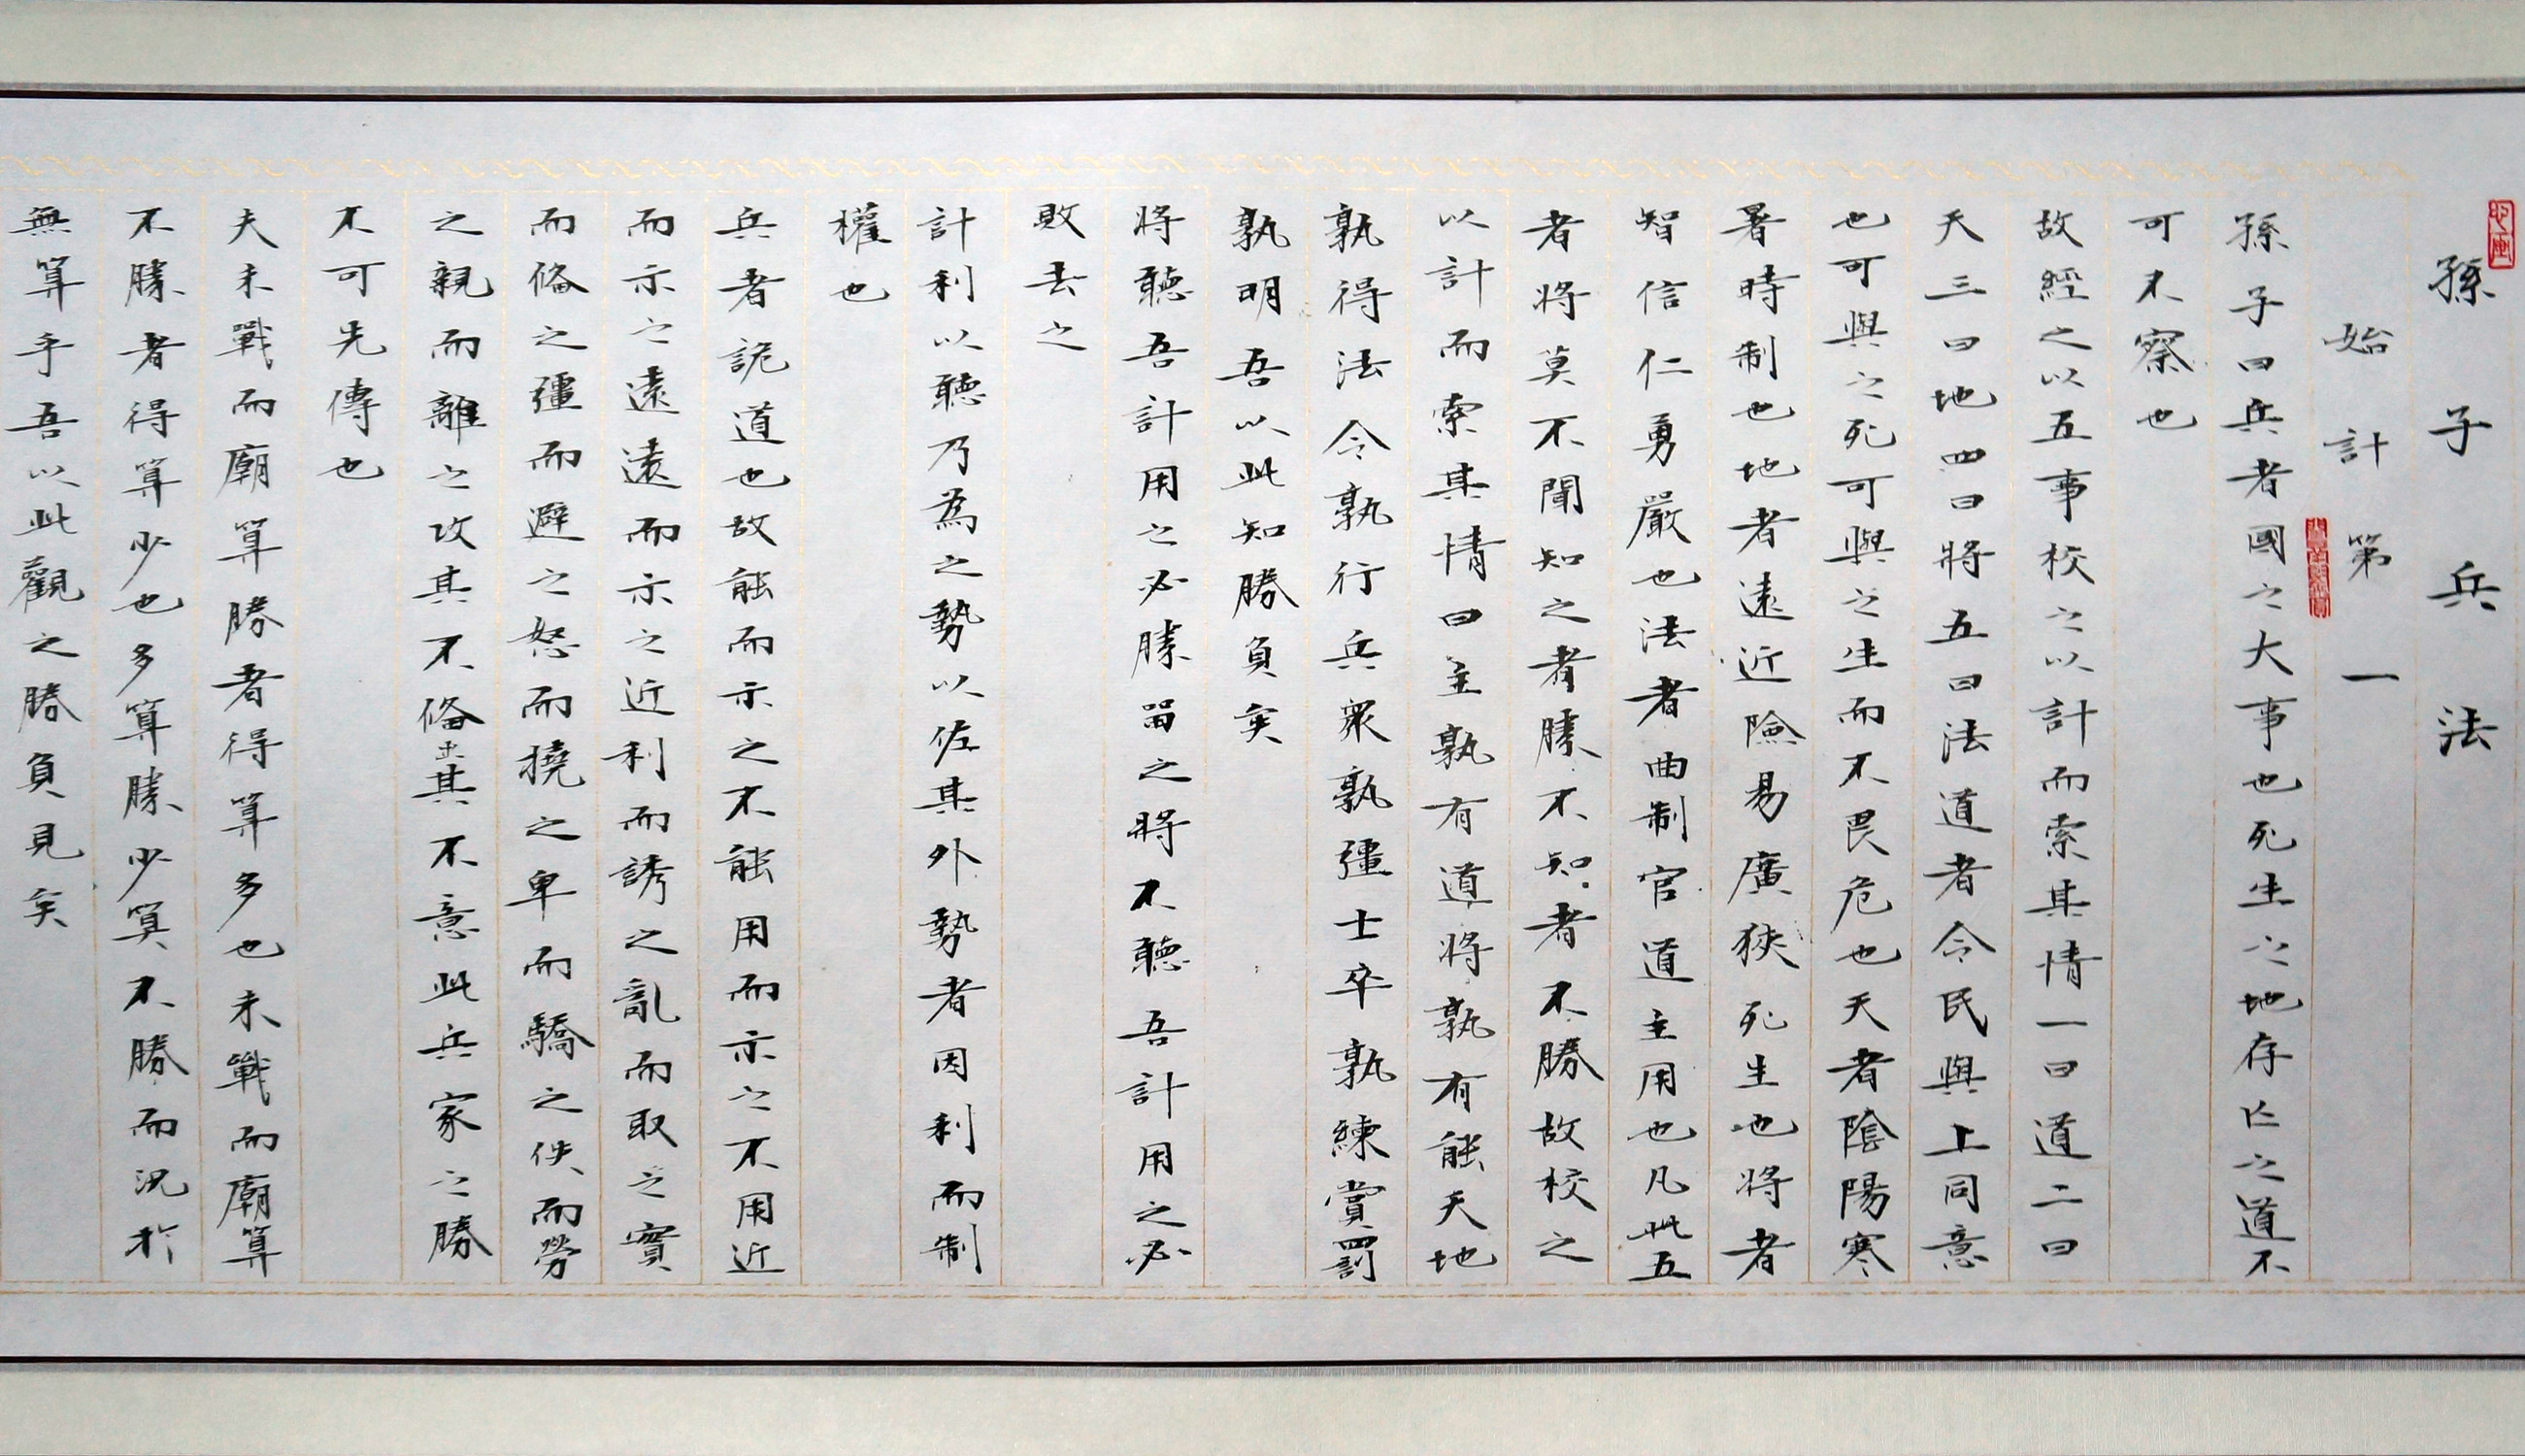 孫子兵法
始計第一
孫子曰兵者國之大事也死生之地存亡之道不
可不察也
故經之以五事校之以計而索其情一曰道二曰
天三曰地四曰將五曰法道者令民與上同意
也可與之死可與之生而不畏危也天者陰陽寒
暑時制也地者遠近險易廣狹死生也將者
智信仁勇嚴也法者曲制官道主用也凡此五
者將莫不聞知之者勝不知者不勝故校之
以計而索其情曰主孰有道將孰有能天地
孰得法令孰行兵衆孰彊士卒孰練賞罰
孰明吾以此知勝負矣
將聽吾計用之必勝留之將不聽吾計用之必
敗去之
計利以聽乃為之勢以佐其外勢者因利而制
權也
兵者詭道也故能而示之不能用而示之不用近
而示之遠遠而示之近利而誘之亂而取之實
而偹之彊而避之怒而撓之卑而驕之佚而勞
之親而離之攻其不偹出其不意此兵家之勝
不可先傳也
夫未戰而廟算勝者得算多也未戰而廟算
不勝者得算少也多算勝少算不勝而況於
無算乎吾以此觀之勝負見矣